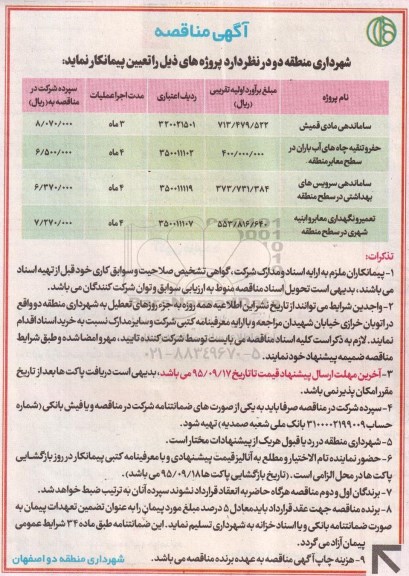 آگهی مناقصه
شهرداری منطقه دو در نظر دارد پروژه های ذیل را تعیین پیمانکار نماید:
نام پروژه مبلغ برآورد اولیه تقریبی (ریال) ردیف اعتباری مدت اجرا عملیات سپرده شرکت در مناقصه به (ریال)
ساماندهی مادی قمیش ۷۱۳/۴۷۹/۵۲۲ ۳۲۰۰۲۱۵۰۱ ۳ ماه ۸/۰۷۰/۰۰۰
حفر و تنقیه چاه های آب باران در سطح معابر منطقه ۴۰۰/۰۰۰/۰۰۰ ۳۵۰۰۱۱۱۰۲ ۴ ماه ۶/۵۰۰/۰۰۰
ساماندهی سرویس های بهداشتی در سطح منطقه ۳۷۳/۷۳۱/۳۸۴ ۳۵۰۰۱۱۱۱۹ ۴ ماه ۶/۳۷۰/۰۰۰
تعمیر و نگهداری معابر و ابنیه شهری در سطح منطقه ۵۵۳/۸۱۶/۶۴۰ ۳۵۰۰۱۱۱۰۷ ۴ ماه ۷/۲۷۰/۰۰۰
تذکرات:
۱- پیمانکاران ملزم به ارایه اسناد و مدارک شرکت، گواهی تشخیص صلاحیت و سوابق کاری خود قبل از تهیه اسناد
می باشند، بدیهی است تحویل اسناد مناقصه منوط به ارزیابی سوابق و توان شرکت کنندگان می باشد.
۲- واجدین شرایط می توانند از تاریخ نشر این اطلاعیه همه روزه به جز، روزهای تعطیل به شهرداری منطقه دو واقع
در اتوبان خرازی خیابان شهیدان مراجعه و با ارایه معرفینامه کتبی شرکت و سایر مدارک نسبت به خرید اسناد اقدام
نمایند. لازم به ذکر است کلیه اسناد مناقصه می بایست توسط شرکت کننده تایید، مهر و امضا شده و طبق شرایط
مناقصه ضمیمه پیشنهاد خود نمایند.
۰۲۱-۸۸۳۴۹۶۷۰-۵
۳- آخرین مهلت ارسال پیشنهاد قیمت تا تاریخ ۹۵/۰۹/۱۷ می باشد، بدیهی است دریافت پاکت ها بعد از تاریخ
مقرر امکان پذیر نمی باشد.
۴- سپرده شرکت در مناقصه صرفا باید به یکی از صورت های ضمانتنامه شرکت در مناقصه و یا فیش بانکی (شماره
حساب ۳۱۰۰۰۰۲۱۹۹۰۰۹ بانک ملی شعبه صمدیه) تهیه شود.
۵- شهرداری منطقه در رد یا قبول هر یک از پیشنهادات مختار است.
۶- حضور نماینده تام الاختیار و مطلع به آنالیز قیمت پیشنهادی و با معرفینامه کتبی پیمانکار در روز بازگشایی
پاکت ها در محل الزامی است. (تاریخ بازگشایی پاکت ها ۹۵/۰۹/۱۸ می باشد).
۷- برندگان اول و دوم مناقصه هرگاه حاضر به انعقاد قرارداد نشوند سپرده آنان به ترتیب ضبط خواهد شد.
۸- برنده مناقصه جهت عقد قرارداد باید معادل ۵ درصد مبلغ مورد پیمان را به عنوان تضمین تعهدات پیمان به
صورت ضمانتنامه بانکی و یا اسناد خزانه به شهرداری تسلیم نماید. این ضمانتنامه طبق ماده ۳۴ شرایط عمومی
پیمان آزاد می گردد.
۹- هزینه چاپ آگهی مناقصه به عهده برنده مناقصه می باشد.
شهرداری منطقه دو اصفهان